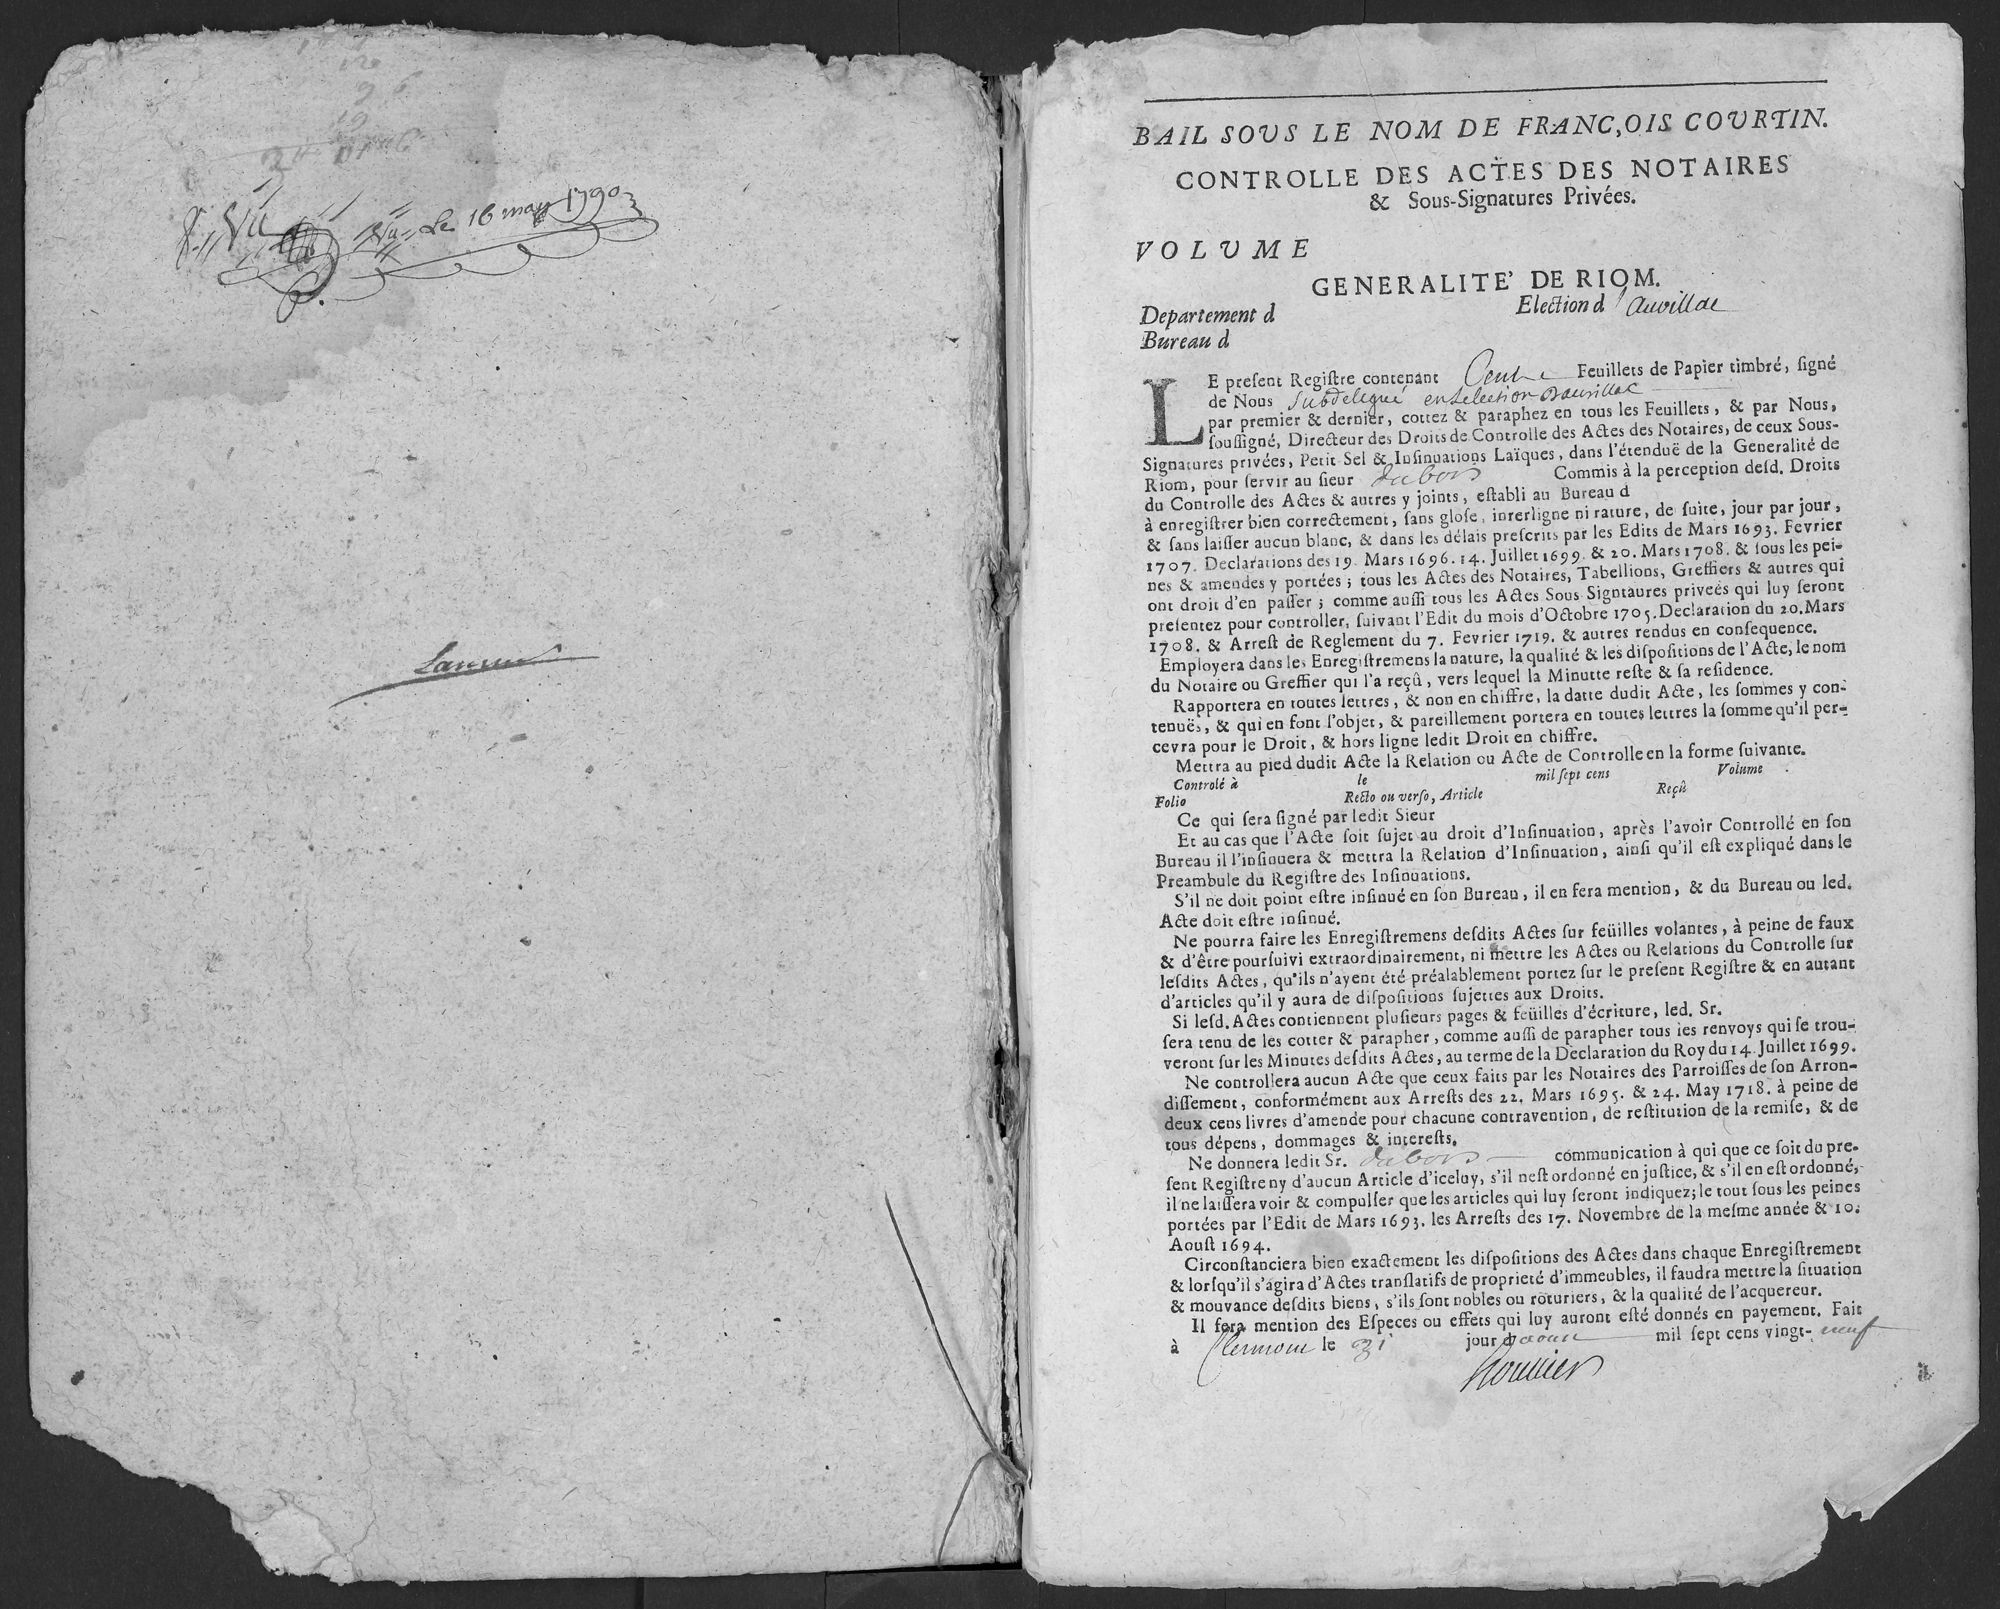 Vu
Vu le 16 may 1790
BAIL SOVS LE NOM DE FRANC,OIS COVRTIN.
CONTROLLE DES ACTES DES NOTAIRES
& Sous-Signatures Privées.
VOLVME
GENERALITE' DE RIOM.
Departement d Election d'auvillac
Bureau d
LE preſent Regiſtre contenant Feuillets de Papier timbré, ſigné
de Nous Subdelegué en Lelection Dauvillac
par premier & dernier, cottez & paraphez en tous les Feuillets, & par Nous,
ſouſſigné, Directeur des Droits de Controlle des Actes des Notaires, de ceux Sous-
Signatures privées, Petit Sel & Inſinuations Laïques, dans l'étenduë de la Generalité de
Riom, pour ſervir au ſieur dubois Commis à la perception deſd. Droits
du Controlle des Actes & autres y joints, eſtabli au Bureau d
à enregiſtrer bien correctement, ſans gloſe, inrerligne ni rature, de ſuite, jour par jour,
& ſans laiſſer aucun blanc, & dans les délais preſcrits par les Edits de Mars 1693. Fevrier
1707. Declarations des 19. Mars 1696. 14. Juillet 1699. & 20. Mars 1708. & ſous les pei-
nes & amendes y portées ; tous les Actes des Notaires, Tabellions, Greffiers & autres qui
ont droit d'en paſſer ; comme auſſi tous les Actes Sous Signtaures privées qui luy ſeront
preſentez pour controller, ſuivant l'Edit du mois d'Octobre 1705. Declaration du 20. Mars
1708. & Arreſt de Reglement du 7. Fevrier 1719. & autres rendus en conſequence.
Employera dans les Enregiſtremens la nature, la qualité & les diſpoſitions de l'Acte, le nom
du Notaire ou Greffier qui l'a reçû, vers lequel la Minutte reſte & ſa reſidence.
Rapportera en toutes lettres, & non en chiffre, la datte dudit Acte, les ſommes y con-
tenuës, & qui en font l'objet, & pareillement portera en toutes lettres la ſomme qu'il per-
cevra pour le Droit, & hors ligne ledit Droit en chiffre.
Mettra au pied dudit Acte la Relation ou Acte de Controlle en la forme ſuivante.
Controlé à le mil ſept cens Volume
Folio Recto ou verſo, Article Reçû
Ce qui ſera ſigné par ledit Sieur
Et au cas que l'Acte ſoit ſujet au droit d'Inſinuation, après l'avoir Controllé en ſon
Bureau il l'inſinuera & mettra la Relation d'Inſinuation, ainſi qu'il eſt expliqué dans le
Preambule du Regiſtre des Inſinuations.
S'il ne doit point eſtre inſinué en ſon Bureau, il en fera mention, & du Bureau ou led.
Acte doit eſtre inſinué.
Ne pourra faire les Enregiſtremens deſdits Actes ſur feüilles volantes, à peine de faux
& d'être pourſuivi extraordinairement, ni mettre les Actes ou Relations du Controlle ſur
leſdits Actes, qu'ils n'ayent été préalablement portez ſur le preſent Regiſtre & en autant
d'articles qu'il y aura de diſpoſitions ſujettes aux Droits.
Si leſd. Actes contiennent pluſieurs pages & feüilles d'écriture, led. Sr.
ſera tenu de les cotter & parapher, comme auſſi de parapher tous les renvoys qui ſe trou-
veront ſur les Minutes deſdits Actes, au terme de la Declaration du Roy du 14. Juillet 1699.
Ne controllera aucun Acte que ceux faits par les Notaires des Parroiſſes de ſon Arron-
diſſement, conformément aux Arreſts des 22. Mars 1695. & 24. May 1718. à peine de
deux cens livres d'amende pour chacune contravention, de reſtitution de la remiſe, & de
tous dépens, dommages & intereſts.
Ne donnera ledit Sr. dubois communication à qui que ce ſoit du pre-
ſent Regiſtre ny d'aucun Article d'iceluy, s'il neſt ordonné en juſtice, & s'il en eſt ordonné,
il ne laiſſera voir & compulſer que les articles qui luy ſeront indiquez; le tout ſous les peines
portées par l'Edit de Mars 1693. les Arreſts des 17. Novembre de la meſme année & 10.
Aouſt 1694.
Circonſtanciera bien exactement les diſpoſitions des Actes dans chaque Enregiſtrement
& lorſqu'il s'agira d'Actes tranſlatifs de proprieté d'immeubles, il faudra mettre la ſituation
& mouvance deſdits biens, s'ils ſont nobles ou roturiers, & la qualité de l'acquereur.
Il fera mention des Eſpeces ou effets qui luy auront eſté donnés en payement. Fait
à Clermont le 31 jour daoust mil ſept cens vingt-neuf